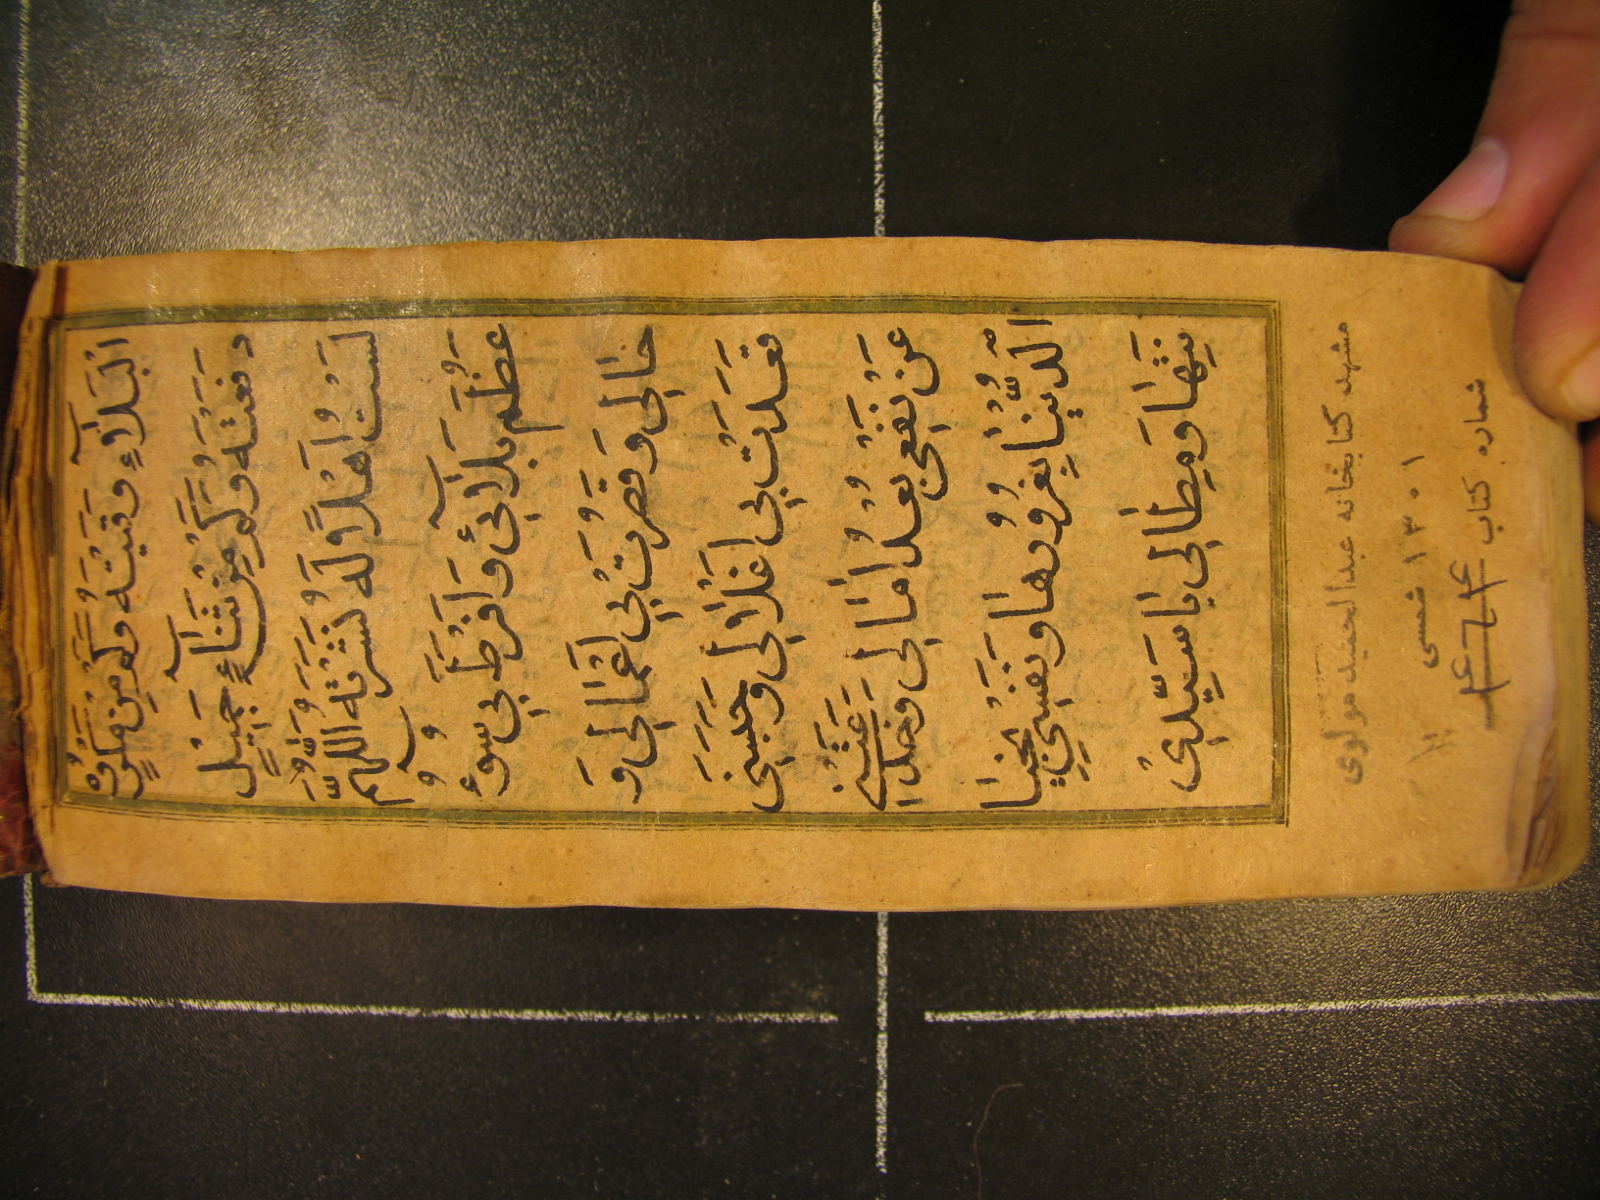 الْبَلَاءِ وَقَيْتَهُ وَكَمْ مِنْ مَكْرُوهٍ
دَفَعْتَهُ وَكَمْ مِنْ ثَنَاءٍ جَمِيْلٍ
لَسْتُ اَهْلًا لَهُ نَشَرْتَهُ اَللّٰهُمَّ
عَظُمَ بَلَآئِیْ وَاَفْرَطَ بِیْ سُوْءُ
حَالِیْ وَقَصُرَتْ بِیْ اَعْمَالِیْ وَ
قَعَدَتْ بِیْ اَغْلَالِیْ وَحَبَسَنِیْ
عَنْ نَفْعِیْ بُعْدُ اٰمَالِیْ وَخَدَعَتْنِیْ
الدُّنْيَا بِغُرُوْرِهَا وَنَفْسِیْ بِخِيَا
نَتِهَا وَمِطَالِیْ يَا سَيِّدِیْ
مشهد كتابخانه عبدالحمید مولوی
۱۳۰۱ شمسی
شماره كتاب